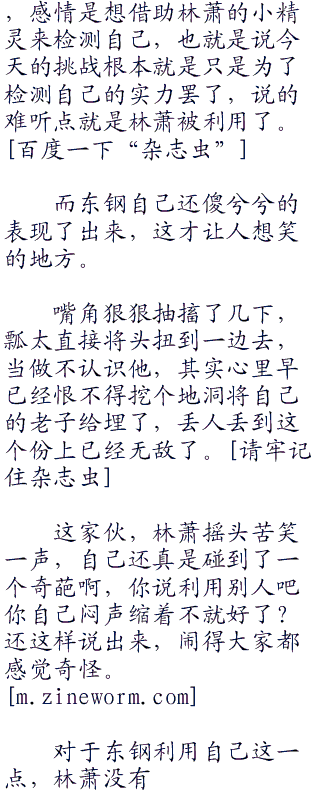 ，感情是想借助林萧的小精
灵来检测自己，也就是说今
天的挑战根本就是只是为了
检测自己的实力罢了，说的
难听点就是林萧被利用了。
[百度一下“杂志虫”]
而东钢自己还傻兮兮的
表现了出来，这才让人想笑
的地方。
嘴角狠狠抽搐了几下，
瓢太直接将头扭到一边去，
当做不认识他，其实心里早
已经恨不得挖个地洞将自己
的老子给埋了，丢人丢到这
个份上已经无敌了。[请牢记
住杂志虫]
这家伙，林萧摇头苦笑
一声，自己还真是碰到了一
个奇葩啊，你说利用别人吧
你自己闷声缩着不就好了？
还这样说出来，闹得大家都
感觉奇怪。
[m.zineworm.com]
对于东钢利用自己这一
点，林萧没有